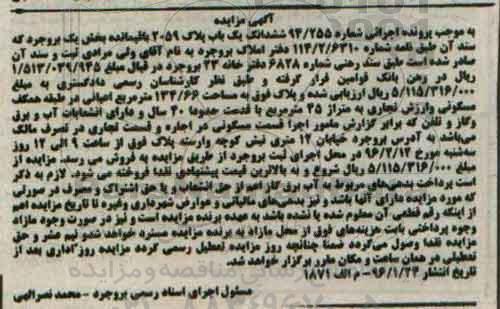 آگهی مزایده
به موجب پرونده اجرائی شماره 94/255 ششدانگ یک باب پلاک 2059 باقیمانده بخش یک بروجرد که
سند آن طبق نامه شماره 114/2/6310 دفتر املاک بروجرد به نام آقای ولی مرادی ثبت و سند آن
صادر شده است طبق سند رهنی شماره 6828 دفتر خانه 23 بروجرد در قبال مبلغ 1/513/039/945
ریال در رهن بانک قوامین قرار گرفته و طبق نظر کارشناسان رسمی دادگستری به مبلغ
5/115/316/000 ریال ارزیابی شده و پلاک فوق به مساحت 134/66 مترمربع اعیانی در طبقه همکف
مسکونی وارزش تجاری به متراژ 25 مترمربع با قدمت حدودا 40 سال و دارای انشعابات آب و برق
وگاز و تلفن که برابر گزارش مامور اجرا قسمت مسکونی در اجاره و قسمت تجاری در تصرف مالک
میباشد به آدرس بروجرد خیابان 12 متری نبش کوچه وارسته پلاک فوق از ساعت 9 الی 12 روز
سه‌شنبه مورخ 96/2/12 در محل اجرای ثبت بروجرد از طریق مزایده به فروش می رسد. مزایده از
مبلغ 5/115/316/000 ریال شروع و به بالاترین قیمت پیشنهادی نقدا فروخته می شود. لازم به ذکر
است پرداخت بدهی‌های مربوط به آب برق گاز اعم از حق انشعاب و یا حق اشتراک و مصرف در صورتی
که مورد مزایده دارای آنها باشد و نیز بدهی‌های مالیاتی و عوارض شهرداری وغیره تا تاریخ مزایده اعم
از اینکه رقم قطعی آن معلوم شده یا نشده باشد به عهده برنده مزایده است و نیز در صورت وجود مازاد
وجوه پرداختی بابت هزینه‌های فوق از محل مازاد به برنده مزایده مسترد خواهد شد و نیم عشر و حق
مزایده نقدا وصول می‌گردد ضمنا چنانچه روز مزایده تعطیل رسمی گردد مزایده روز اداری بعد از
تعطیلی در همان ساعت و مکان مقرر برگزار خواهد شد.
تاریخ انتشار 96/1/24 - م الف 1871
مسئول اجرای اسناد رسمی بروجرد - محمد نصرالهی